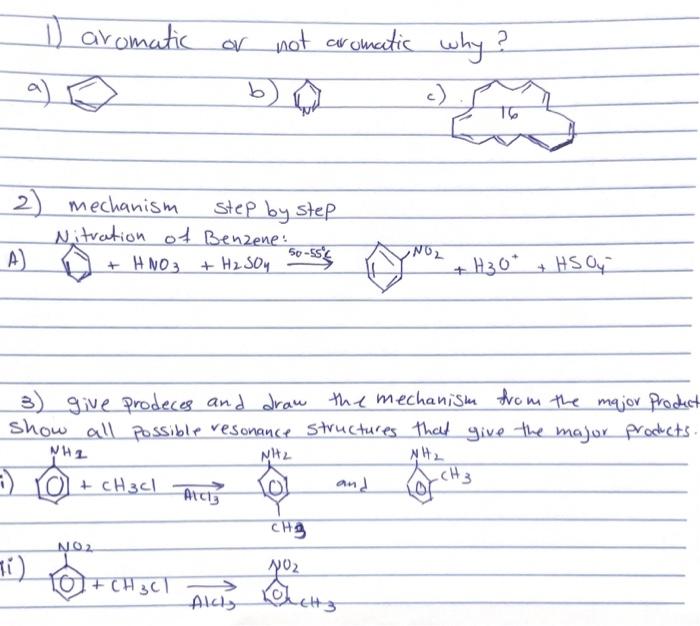 1) aromatic or not aromatic why?
a) b) N c) 16
2) mechanism step by step
Nitration of Benzene:
A) + HNO3 + H2SO4 50-55°C NO2 + H3O+ + HSO4-
3) give prodeces and draw the mechanism from the major product
Show all possible resonance structures that give the major products.
NH2 NH2 NH2
i) + CH3Cl AlCl3 and CH3
CH3
NO2 NO2
ii) + CH3Cl AlCl3 CH3